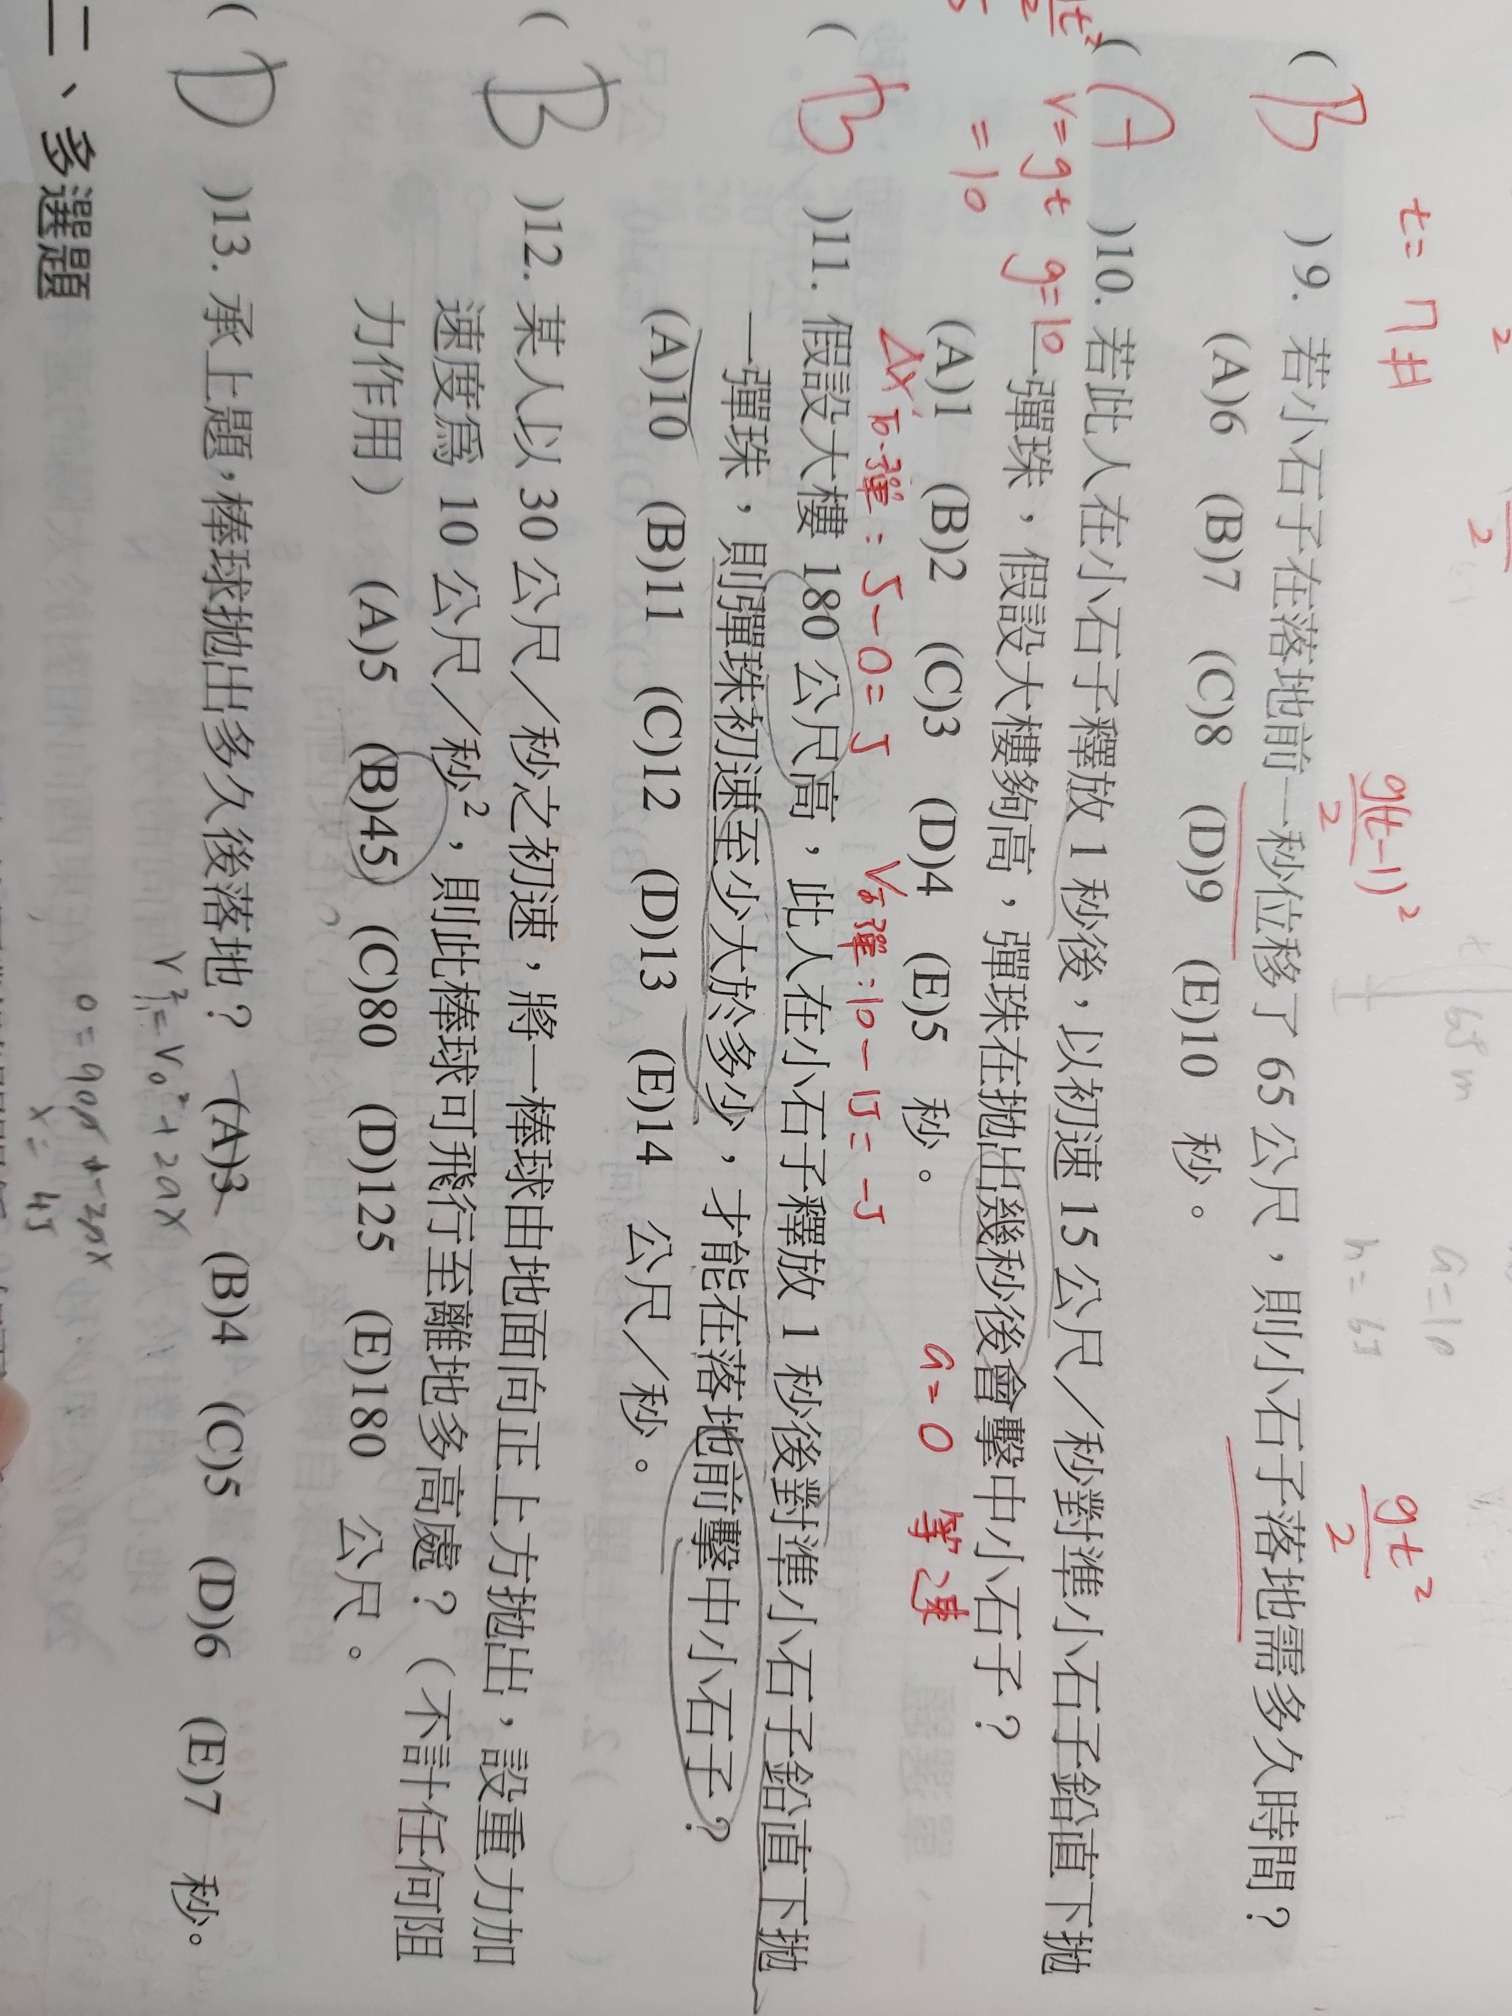 t = 7 #
g(t-1)²/2
gt²/2
a=10
h=65
65 m
( B )9. 若小石子在落地前一秒位移了 65 公尺，則小石子落地需多久時間？
(A)6 (B)7 (C)8 (D)9 (E)10 秒。
( A )10. 若此人在小石子釋放 1 秒後，以初速 15 公尺／秒對準小石子鉛直下拋
一彈珠，假設大樓夠高，彈珠在拋出幾秒後會擊中小石子？
(A)1 (B)2 (C)3 (D)4 (E)5 秒。
v = gt g=10
= 10
Δx 石-彈 : 5-0=5 V石彈 : 10-15=-5 a=0 等速
( B )11. 假設大樓 180 公尺高，此人在小石子釋放 1 秒後對準小石子鉛直下拋
一彈珠，則彈珠初速至少大於多少，才能在落地前擊中小石子？
(A)10 (B)11 (C)12 (D)13 (E)14 公尺／秒。
( B )12. 某人以 30 公尺／秒之初速，將一棒球由地面向正上方拋出，設重力加
速度為 10 公尺／秒²，則此棒球可飛行至離地多高處？（不計任何阻
力作用） (A)5 (B)45 (C)80 (D)125 (E)180 公尺。
( D )13. 承上題，棒球拋出多久後落地？ (A)3 (B)4 (C)5 (D)6 (E)7 秒。
V² = V₀² + 2ax
x = 45
二、多選題